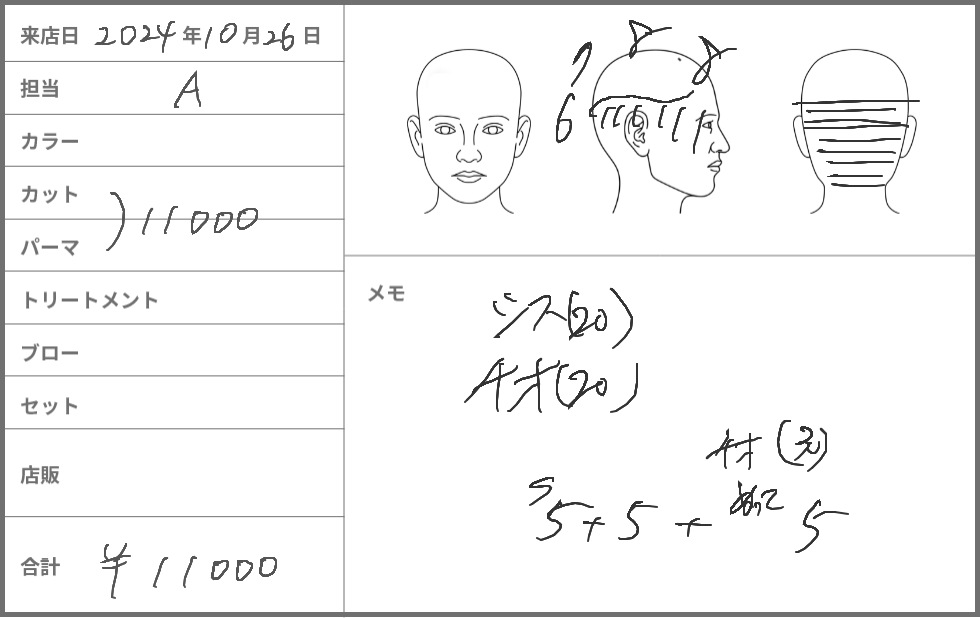 来店日 2024年10月26日
担当 A
カラー
カット
パーマ
) 11000
トリートメント
ブロー
セット
店販
合計 ¥11000
7
6
メモ
シス(20)
チオ(20)
チオ
5+5+ 5